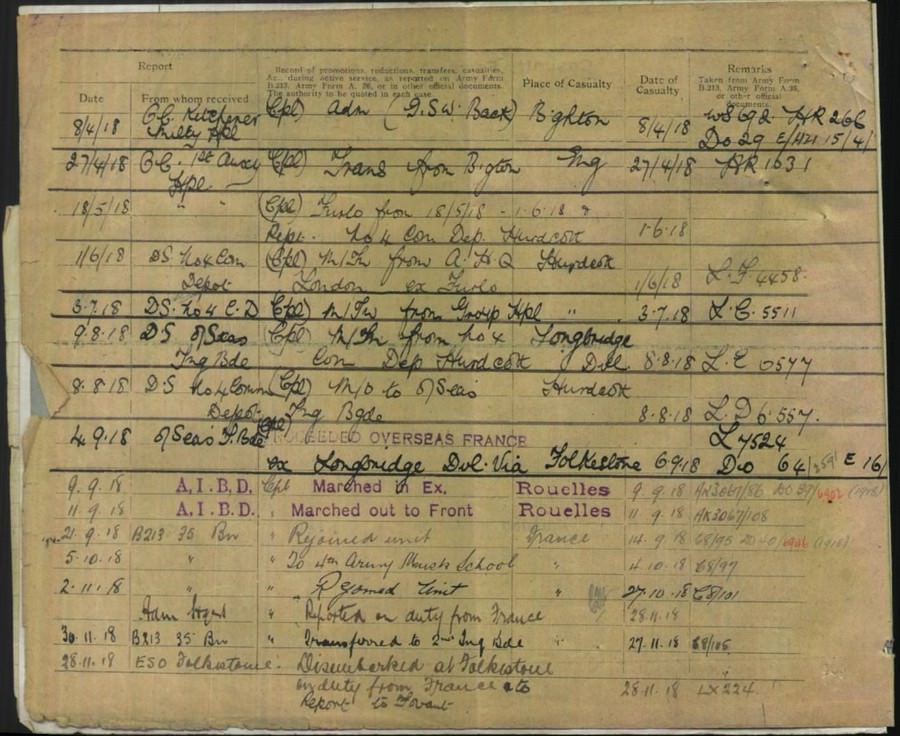 Report
Record of promotions, reductions, transfers, casualties,
&c., during active service, as reported on Army Form
B.213, Army Form A. 36, or in other official documents.
The authority to be quoted in each case.
Place of Casualty
Date of
Casualty
Remarks
Taken from Army Form
B.213, Army Form A.36,
or other official
documents.
Date
From whom received
8/4/18 O.C. Kitchener Cpl) adm (G.S.W. Back) Bighton 8/4/18 HR 266
Hpl Do 29 15/4/
27/4/18 O.C. 1st Hpl Cpl) Trans from Bigton Eng 27/4/18 HR 1031
18/5/18 " " (Cpl) Furlo from 18/5/18 - 1.6.18 &
Rept. No 4 Con Dep. Hurdcott 1.6.18
1/6/18 DS. No 4 Con Depot (Cpl) M/In from A.H.Q Hurdcott
London ex Furlo 1/6/18 L.F 4458.
3.7.18 DS. No 4 C.D Cpl) from Group Hpl " 3.7.18 L.C. 5511
9.8.18 DS O/Seas (Cpl) M/In from No 4 Longbridge
Tng Bde Con Dep Hurdcott Dvl. 8.8.18 L.E 0577
8.8.18 DS No 4 Comm (Cpl) M/O to O/Seas Hurdcott
Depot. Tng Bgde 8.8.18 L.D 6.557.
4.9.18 O/Seas T. Bde Cpl) PROCEEDED OVERSEAS FRANCE L 7524
ex Longbridge Dvl. Via Folkestone 6.9.18 Do 64/ E 16/
9.9.18 A.I.B.D. Cpl Marched in Ex. Rouelles 9.9.18 AK3067/86
11.9.18 A.I.B.D. " Marched out to Front Rouelles 11.9.18 AK3067/108
21.9.18 B213 35 Bn " Rejoined unit France 14.9.18 68/95
5.10.18 " " To 4th Army Musk School " 4.10.18 68/97
2.11.18 " " Rejoined Unit " 27.10.18 68/101
Adm " Reported on duty from France 28.11.18
30.11.18 B213 35 Bn " Transferred to 2nd Tng Bde " 27.11.18 68/105
28.11.18 ESO Folkestone. Disembarked at Folkestone
on duty from France & to 28.11.18 LX224
Report to Fovant